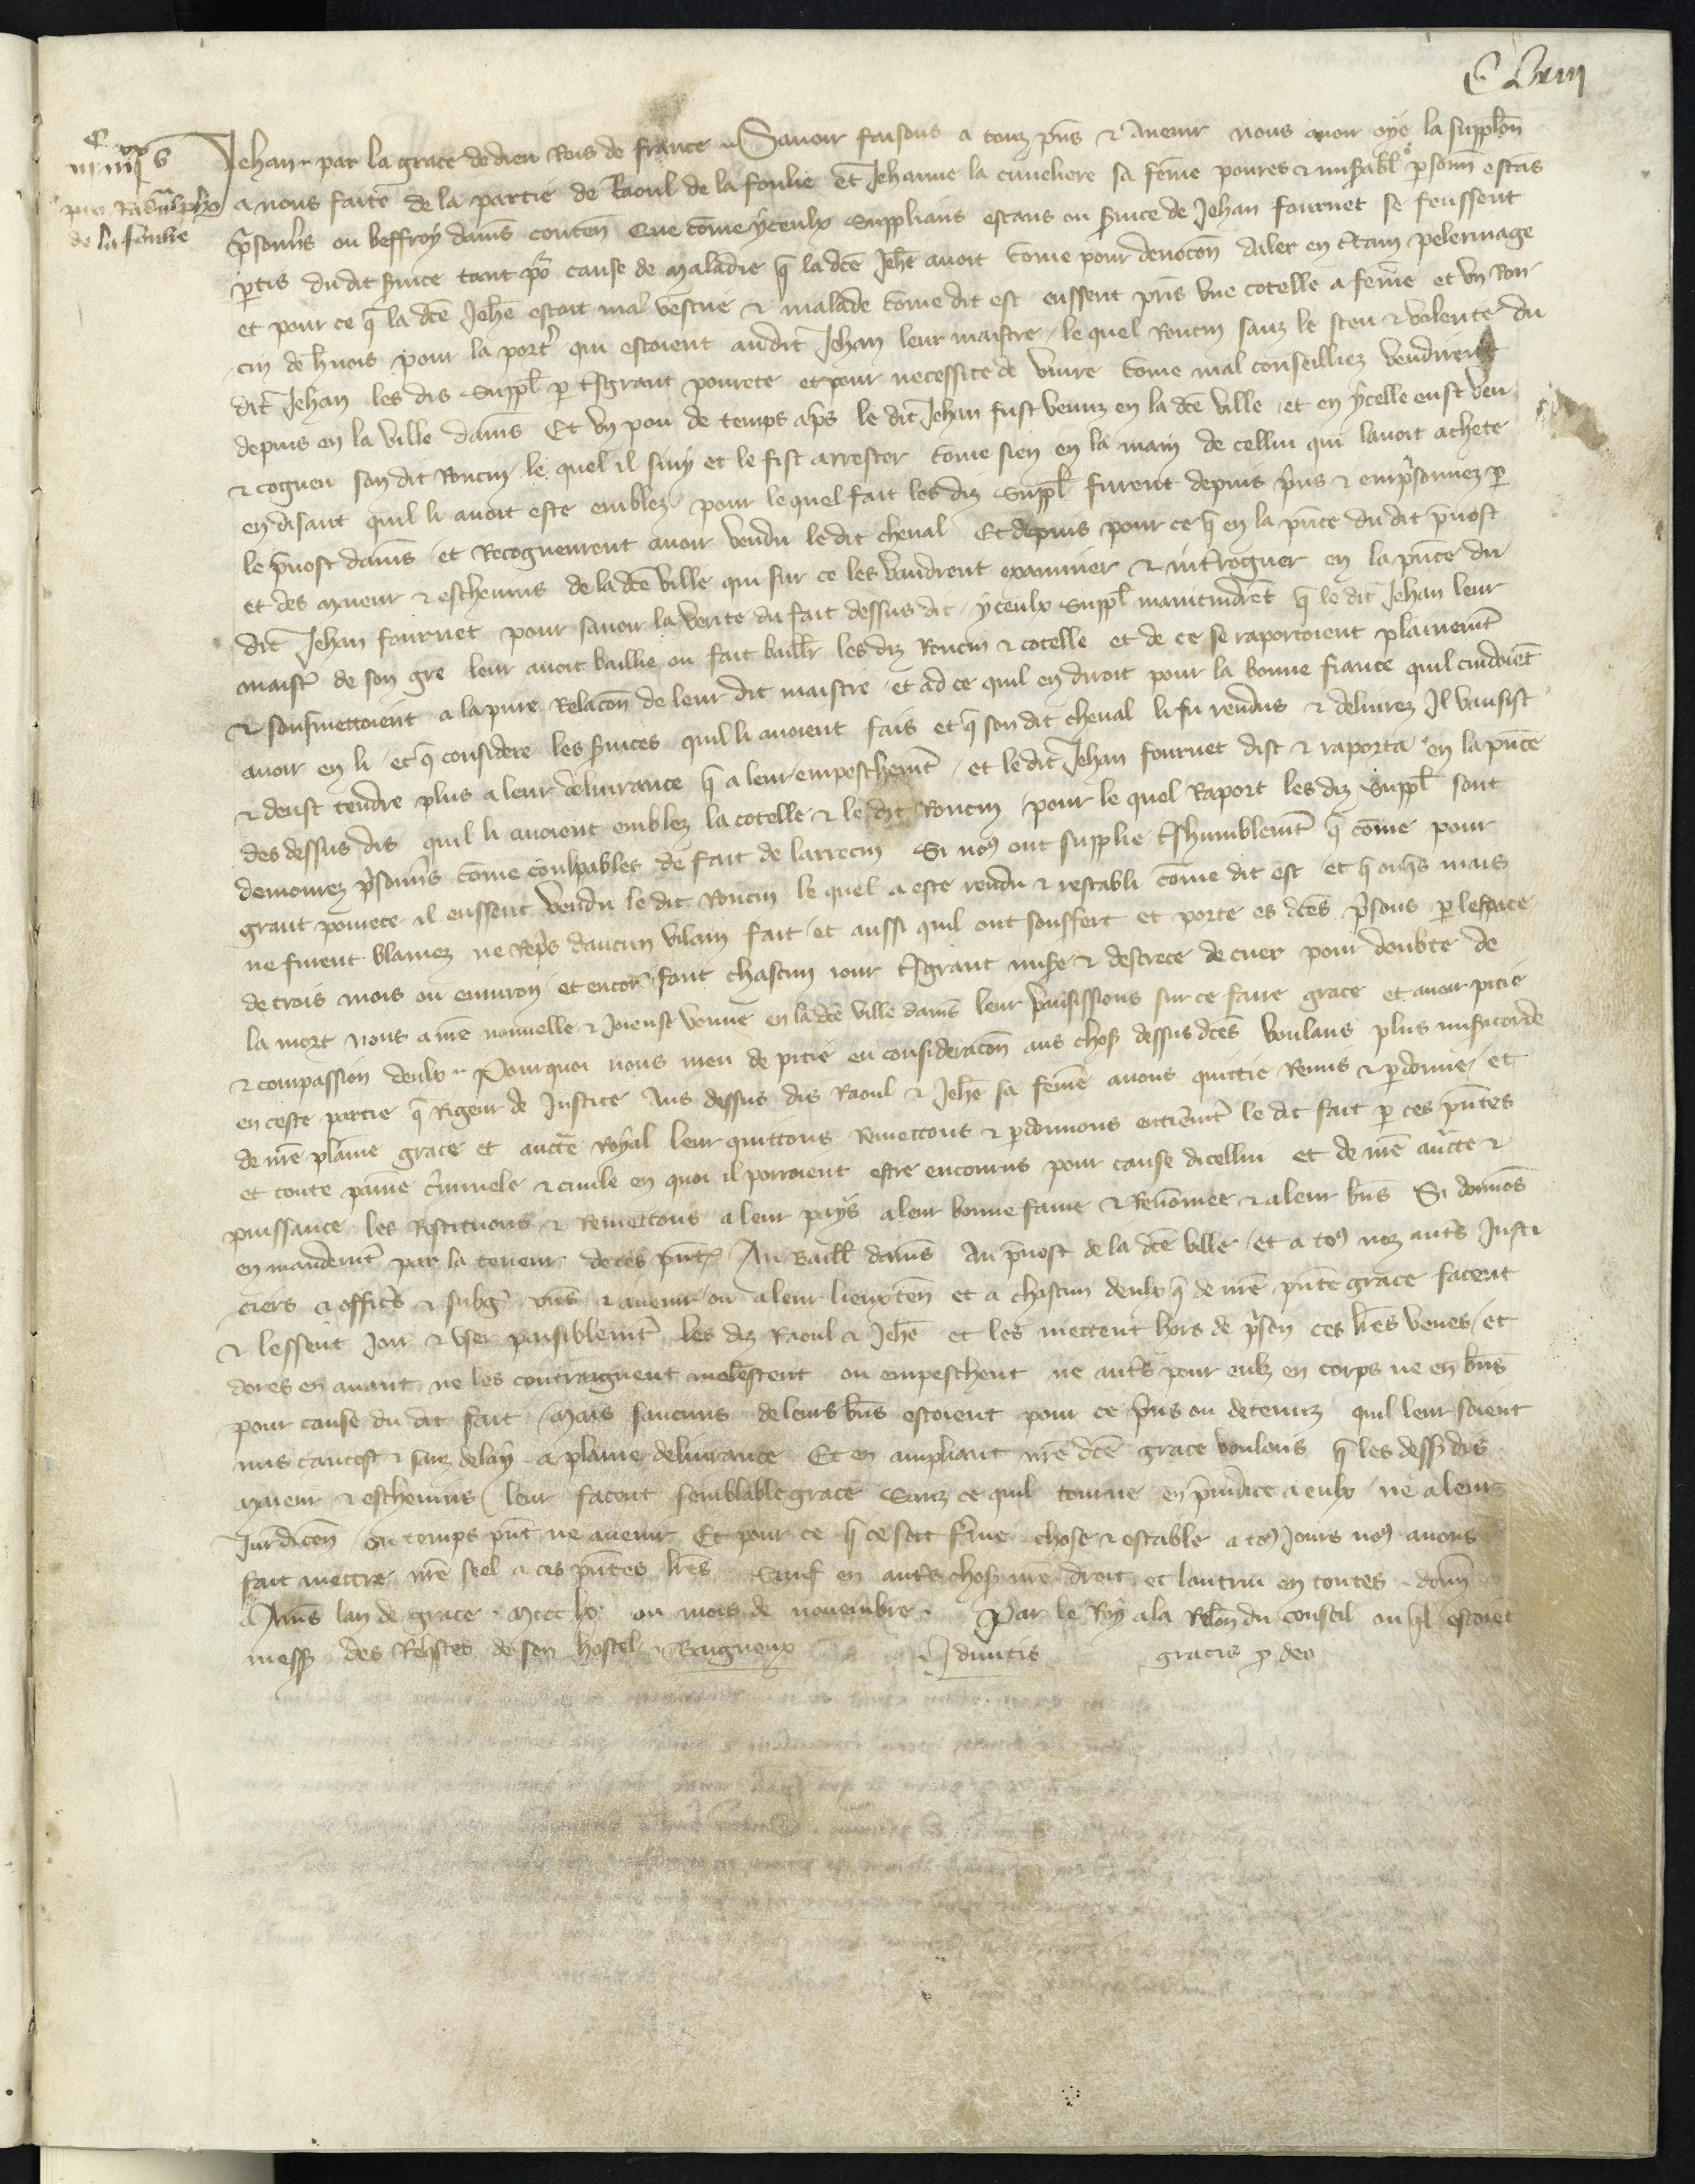 C Lxiii
C
iii iiijxx v
pro Radulpho
de la foulie
Jehan par la grace de dieu Rois de france Savoir faisons a touz pñs & avenir nous avoir oye la supplõn
a nous faite de la partie de Raoul de la foulie et Jehanne la cuveliere sa fẽme poures & miserabl psonn estãs
prisonñs ou beffroy damiẽs conteñ Que cõme yceulx supplians estans ou service de Jehan fournet se feussent
ptis dudit service tant por cause de maladie q̃ la dcẽ Jehẽ avoit cõme pour devocõn daler en ctain pelerinage
et pour ce q̃ la dcẽ Jehẽ estoit mal vestue & malade cõme dit est eussent pris une cotelle a fẽme et un Ron
cin de hñois pour la port̃ qui estoient audit Jehan leur maistre le quel Roncin sanz le sceu & volente du
dit Jehan les dis Suppl̃ p tsgrant pourete et pour necessite de vivre cõme mal conseilliez vendirent
depuis en la ville damiẽs Et un pou de temps apřs le dit Jehan fust venuz en la dcẽ ville et en ycelle eust veu
& cogneu son dit Roncin le quel il suiy et le fist arrester cõme sien en la main de cellui qui lavoit achete
en disant quil li avoit este emblez pour lequel fait les diz Suppl̃ furent depuis pris & emprisonnez p
le pvost damiẽs et Recogneurent avoir vendu ledit cheval Et depuis pour ce q̃ en la pñce du dit pvost
et des maieur & eschevins de la dcẽ ville qui sur ce les vaudrent examiner & int̃roguer en la pñce du
dit Jehan fournet pour savoir la verite du fait dessus dit yceulx Suppl̃ maintindrẽt q̃ le dit Jehan leur
maist̃ de son gre leur avoit baillie ou fait baill̃r les diz Roncin & cotelle et de ce se raportoient plainemt̃
& sousmettoient a la pure Relacõn de leur dit maistre et ad ce quil en diroit pour la bonne fiance quil cuidoiẽt
avoir en li et q̃ considere les services quil li avoient fais et q̃ son dit cheval li fu rendus & delivrez Il vausist
& deust tendre plus a leur delivrance q̃ a leur empeschemt̃ et ledit Jehan fournet dist & raporta en la pñce
des dessus dis quil li avoient emblez la cotelle & le dit Roncin pour le quel Raport les diz Suppl̃ sont
demourez prisonñs cõme coulpables de fait de larrecin Si noꝰ ont supplie tshumblemt̃ q̃ cõme pour
grant pourete il eussent vendu le dit Roncin le quel a este rendu & restabli cõme dit est et q̃ onq̃s mais
ne furent blamez ne Repřs daucun vilain fait et aussi quil ont souffert et porte es dcẽs prisons p lespace
de trois mois ou environ et encor̃ font chascun jour tsgrant misẽ & destrece de cuer pour doubte de
la mort nous a ñre nouvelle & joieuse venue en la dcẽ ville damiẽs leur vausissions sur ce faire grace et avoir pitie
& compassion deulx Pourquoi nous meu de pitie eu consideracõn aus choses dessus dcẽs voulans plus misericorde
en ceste partie q̃ Rigeur de Justice Aus dessus dis Raoul & Jehẽ sa fẽme avons quittie Remis & pdonne et
de ñre plaine grace et auctẽ Royal leur quittons Remettons & pdonnons entiẽmt̃ le dit fait p ces pñtes
et toute paine criminele & civile en quoi il porroient estre encouruz pour cause dicellui et de ñre aucte &
puissance les Restituons & Remettons a leur pays a leur bonne fame & Renõmee & a leur biẽs Si donnõs
en mandemt̃ par la teneur de ces pñt Au Baill̃ damiẽs Au pvost de la dcẽ ville et a toꝰ noz autres Justi
ciers & officiẽs & subgẽ pñs & avenir ou a leur lieuxteñ et a chascun deulx q̃ de ñre pñte grace facent
& lessent joir & user paisiblemt̃ les diz Raoul & Jehẽ et les mettent hors de prison ces lrẽs veues et
dores en avant ne les contraignent molestent ou empeschent ne autres pour eulz en corps ne en biẽs
pour cause du dit fait Mais saucuns de leurs biẽs estoient pour ce pris ou detenuz quil leur soient
mis tantost & sanz delay a plaine delivrance Et en ampliant ñre dcẽ grace voulons q̃ les dess dis
Maieur & eschevins leur facent semblable grace Sanz ce quil tourne en pjudice a eulx ne a leur
Juridicõn ou temps pñt ne avenir Et pour ce q̃ ce soit fẽme chose & estable a toꝰ jours noꝰ avons
fait mettre ñre seel a ces pñtes lrẽs Sauf en autres choses ñre droit et lautrui en toutes donñ
a Amiẽs lan de grace mccc lx ou mois de novembre Par le Roy a la Relõn du conseil ou ql̃ estoiẽt
mess des Req̃stes de son hostel Baigneux
Iduntis gracis p deo